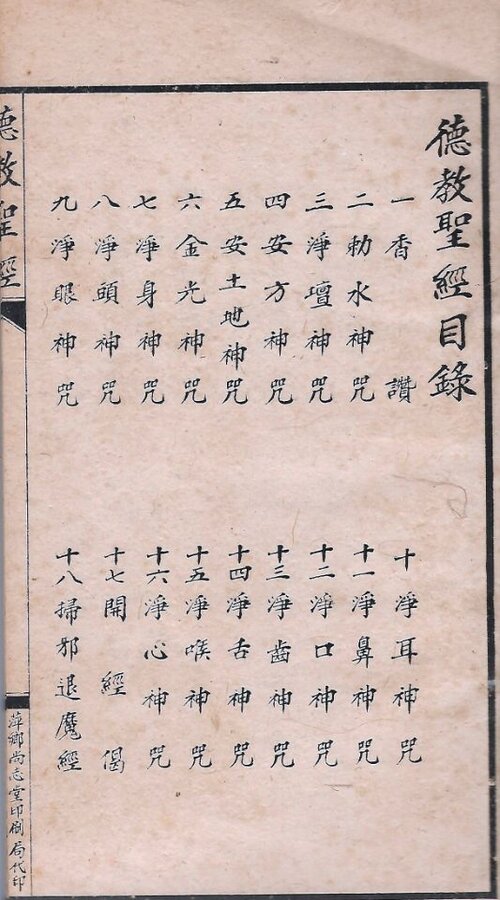 德教聖經目錄
一香讚
二勅水神咒
三淨壇神咒
四安方神咒
五安土地神咒
六金光神咒
七淨身神咒
八淨頭神咒
九淨眼神咒
十淨耳神咒
十一淨鼻神咒
十二淨口神咒
十三淨齒神咒
十四淨舌神咒
十五淨喉神咒
十六淨心神咒
十七開經偈
十八掃邪退魔經
德教聖經
萍鄉尚志堂印刷局代印